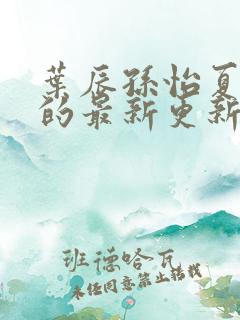 葉辰孫怡夏
的最新更新
班德哈瓦
未经同意禁止转载